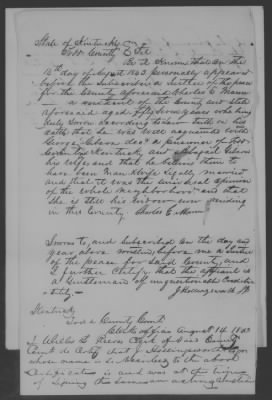 State of Kentucky
Todd County } Sct
Be it Known that on the
12th day of August 1843 personally appeared
before the Subscriber a Justice of the peace
for the County aforesaid Charles E Mann
a resident of the County and state
aforesaid aged fifty seven years who being
duly Sworn according to law doth on his
oath that he was well acquainted with
George Gibson decd a pensioner of
Kentucky and Abigail Gibson
his wife and that he believes them to
have been Man & Wife legally married
and that it was the universal opinion
of the whole neighborhood and that
she is still his widow now residing
in this County Charles E Mann
Sworn to, and Subscribed on the day and
year above written before me a Justice
of the peace for said County, and
I further Certify that the affiant is
a Gentleman of unquestionable
J Hollingsworth JP
Kentucky
Todd County Court
Clerks office August 14 1843
I Willis L Reeves Clerk of said County
Court do Certify that J Hollingsworth
whose name is to the above
Certificate is and was at the time
of signing the same an acting